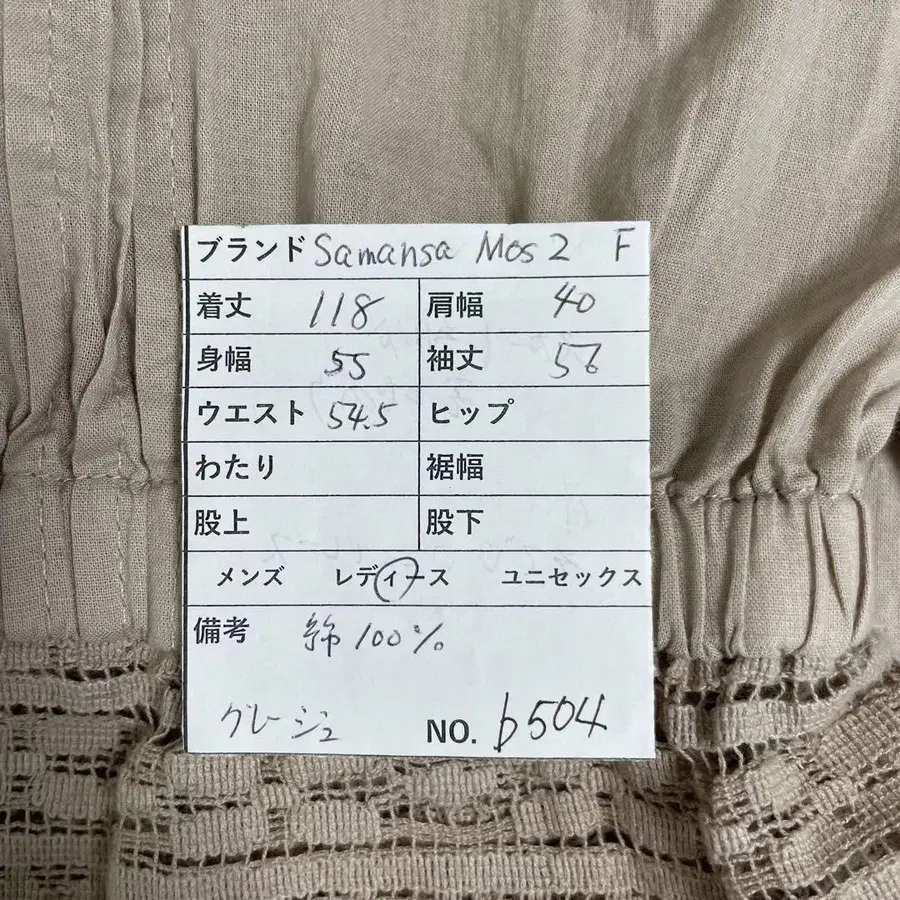 ブランド Samansa Mos2 F
着丈 118 肩幅 40
身幅 55 袖丈 56
ウエスト 54.5 ヒップ
わたり 裾幅
股上 股下
メンズ レディース ユニセックス
備考 綿100%
グレージュ NO. b504